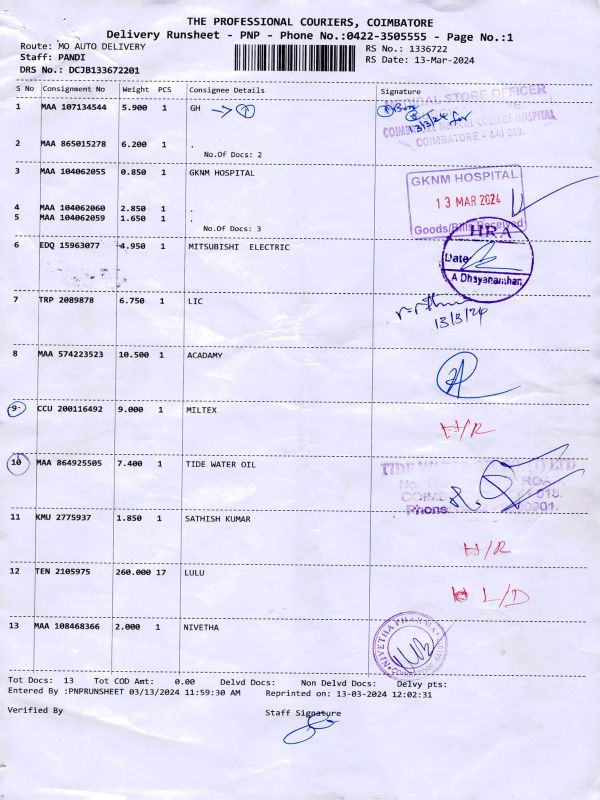 THE PROFESSIONAL COURIERS, COIMBATORE
Delivery Runsheet - PNP - Phone No.:0422-3505555 - Page No.:1
Route: MO AUTO DELIVERY RS No.: 1336722
Staff: PANDI RS Date: 13-Mar-2024
DRS No.: DCJB133672201
S No Consignment No Weight PCS Consignee Details Signature
1 MAA 107134544 5.900 1 GH
MEDICAL STORE OFFICER
13/3/24 for
COIMBATORE MEDICAL COLLEGE HOSPITAL
COIMBATORE - 641 018.
2 MAA 865015278 6.200 1 .
No.Of Docs: 2
3 MAA 104062055 0.850 1 GKNM HOSPITAL
GKNM HOSPITAL
13 MAR 2024
Goods/Bills Received
4 MAA 104062060 2.850 1 .
5 MAA 104062059 1.650 1 .
No.Of Docs: 3
6 EDQ 15963077 4.950 1 MITSUBISHI ELECTRIC
HRA
Date
A Dhayananthan
7 TRP 2089878 6.750 1 LIC
13/3/24
8 MAA 574223523 10.500 1 ACADAMY
9 CCU 200116492 9.000 1 MILTEX
H/R
10 MAA 864925505 7.400 1 TIDE WATER OIL
TIDE WATER LTD
No. ROAD
COIMB 018.
Phone 0901.
11 KMU 2775937 1.850 1 SATHISH KUMAR
H/R
12 TEN 2105975 260.000 17 LULU
L/D
13 MAA 108468366 2.000 1 NIVETHA
NIVETHA PHARMA
COIMBATORE
Tot Docs: 13 Tot COD Amt: 0.00 Delvd Docs: Non Delvd Docs: Delvy pts:
Entered By :PNPRUNSHEET 03/13/2024 11:59:30 AM Reprinted on: 13-03-2024 12:02:31
Verified By Staff Signature